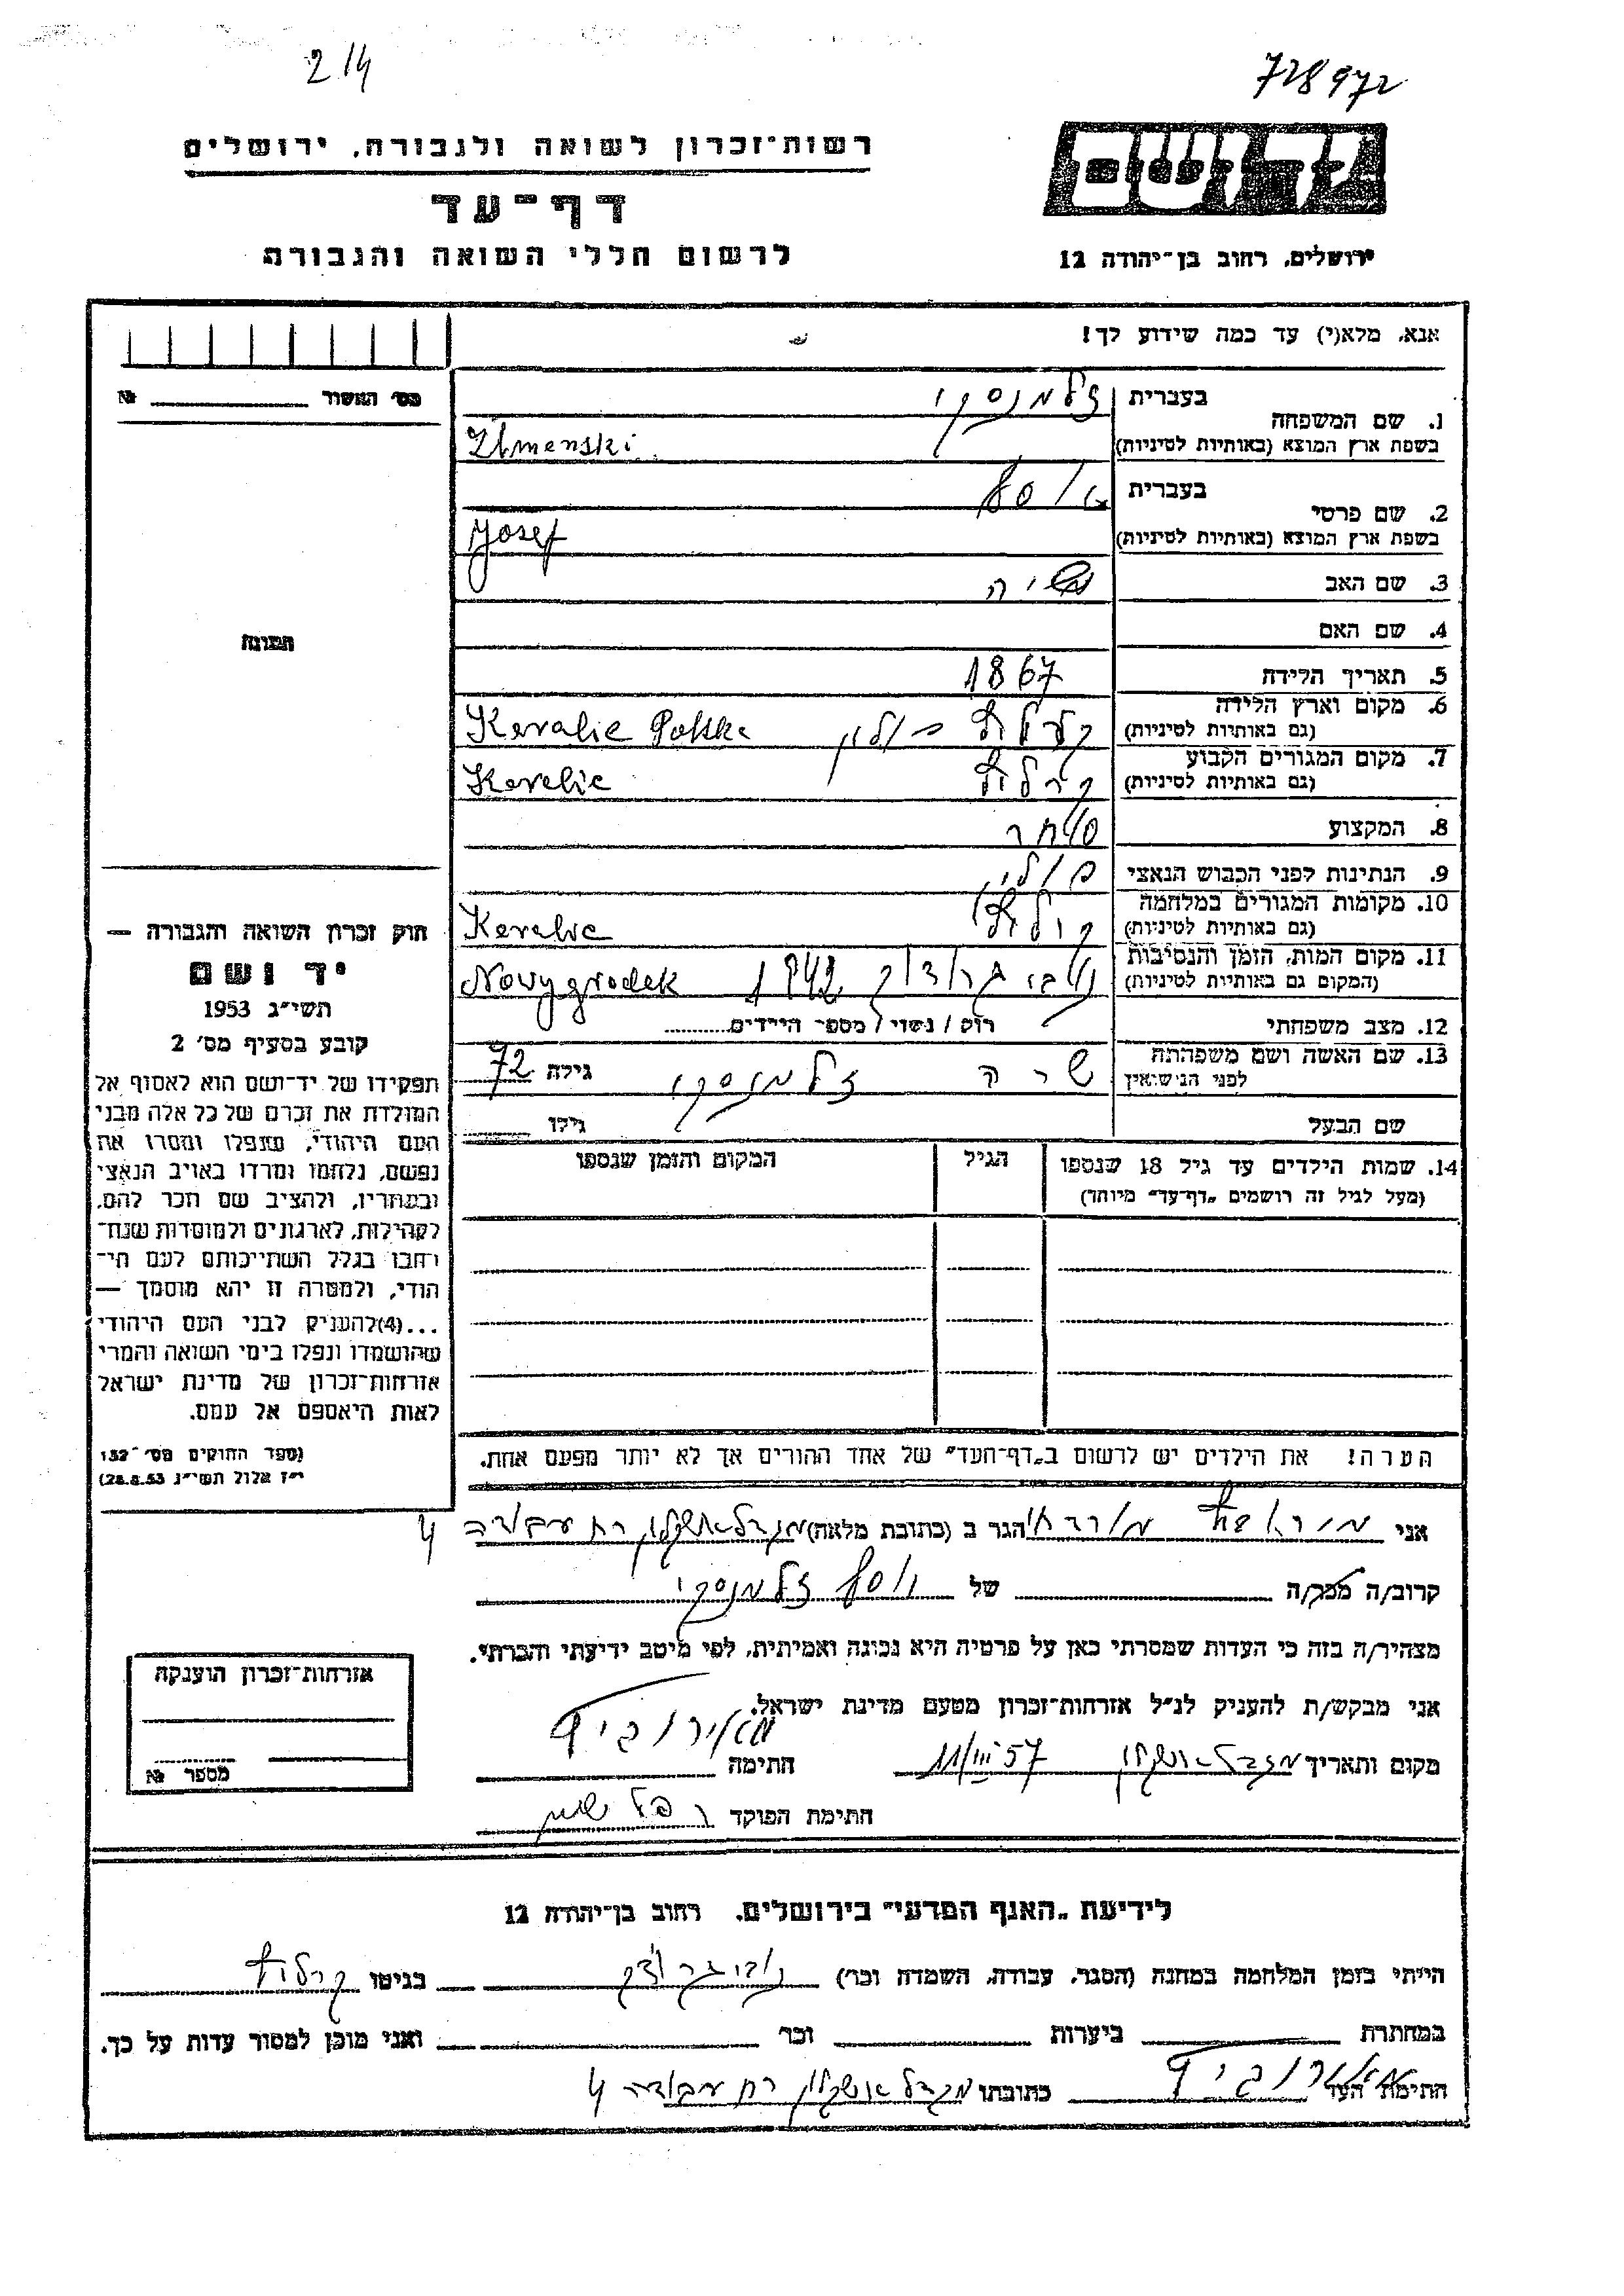 2/4
728972
רשות-זכרון לשואה ולגבורה, ירושלים
דף-עד
לרשום חללי השואה והגבורה
ירושלים, רחוב בן-יהודה 12
אנא, מלא(י) עד כמה שידוע לך!
מס' האשור №
1. שם המשפחה בעברית זלמנסקי
בשפת ארץ המוצא (באותיות לטיניות) Zlmenski
2. שם פרטי בעברית יוסף
בשפת ארץ המוצא (באותיות לטיניות) Josef
3. שם האב
4. שם האם
5. תאריך הלידה 1867
6. מקום וארץ הלידה פולין Keralic Polska
(גם באותיות לטיניות)
7. מקום המגורים הקבוע Kerelic
(גם באותיות לטיניות)
8. המקצוע סוחר
9. הנתינות לפני הכבוש הנאצי פולני
10. מקומות המגורים במלחמה Kerelic
(גם באותיות לטיניות)
11. מקום המות, הזמן והנסיבות נובוגרודק 1942 Nowygrodek
(המקום גם באותיות לטיניות)
12. מצב משפחתי רוק / נשוי / מספר הילדים
13. שם האשה ושם משפחתה שרה זלמנסקי גילה 72
לפני הנישואין
שם הבעל גילו
14. שמות הילדים עד גיל 18 שנספו הגיל המקום והזמן שנספו
(מעל לגיל זה רושמים „דף-עד" מיוחד)
תמונה
חוק זכרון השואה והגבורה —
יד ושם
תשי"ג 1953
קובע בסעיף מס' 2
תפקידו של יד-ושם הוא לאסוף אל
המולדת את זכרם של כל אלה מבני
העם היהודי, שנפלו ומסרו את
נפשם, נלחמו ומרדו באויב הנאצי
ובעוזריו, ולהציב שם וזכר להם,
לקהילות, לארגונים ולמוסדות שנח-
רבו בגלל השתייכותם לעם הי-
הודי, ולמטרה זו יהא מוסמך —
...(4)להעניק לבני העם היהודי
שהושמדו ונפלו בימי השואה והמרי
אזרחות-זכרון של מדינת ישראל
לאות היאספם אל עמם.
(ספר החוקים מס' 132
י"ז אלול תשי"ג 28.8.53)
הערה! את הילדים יש לרשום ב„דף-העד" של אחד ההורים אך לא יותר מפעם אחת.
אני הגר ב (כתובת מלאה) מגדל אשקלון רח עבודה 4
קרוב/ה מכר/ה של יוסף זלמנסקי
מצהיר/ה בזה כי העדות שמסרתי כאן על פרטיה היא נכונה ואמיתית, לפי מיטב ידיעתי והכרתי.
אני מבקש/ת להעניק לנ"ל אזרחות-זכרון מטעם מדינת ישראל.
מקום ותאריך מגדל אשקלון 11/III 57 חתימה
חתימת הפוקד
אזרחות-זכרון הוענקה
מספר №
לידיעת „האגף המדעי" בירושלים, רחוב בן-יהודה 12
הייתי בזמן המלחמה במחנה (הסגר, עבודה, השמדה וכו') נובוגרודק בגיטו
במחתרת ביערות וכו' ואני מוכן למסור עדות על כך.
חתימת העד כתובתו מגדל אשקלון רח עבודה 4